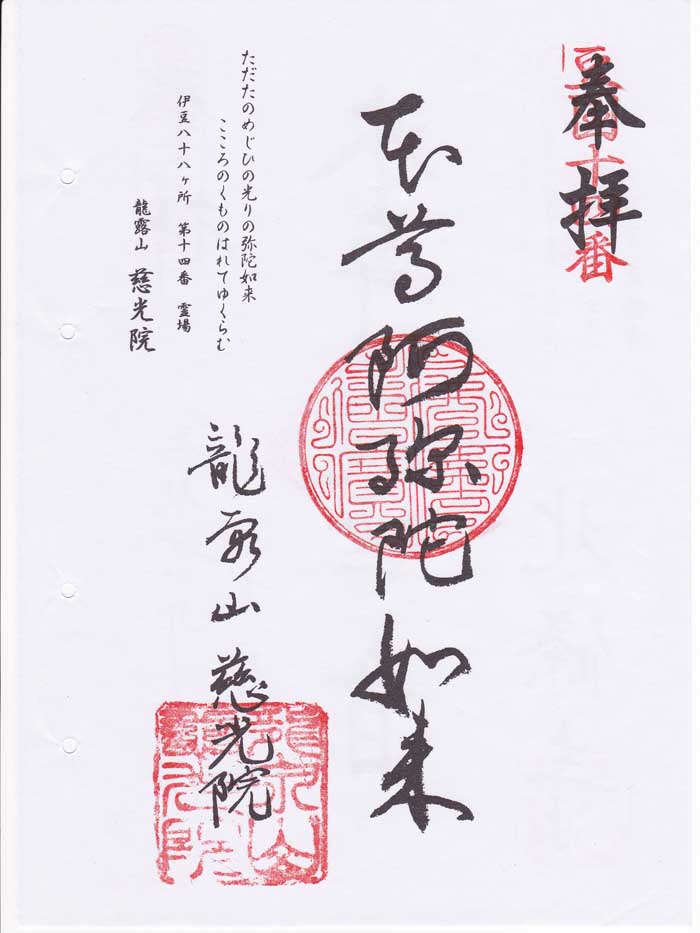 奉拝
本尊阿弥陀如来
ただたのめじひの光りの弥陀如来
こころのくものはれてゆくらむ
伊豆八十八ヶ所 第十四番 霊場
龍露山 慈光院
龍露山 慈光院